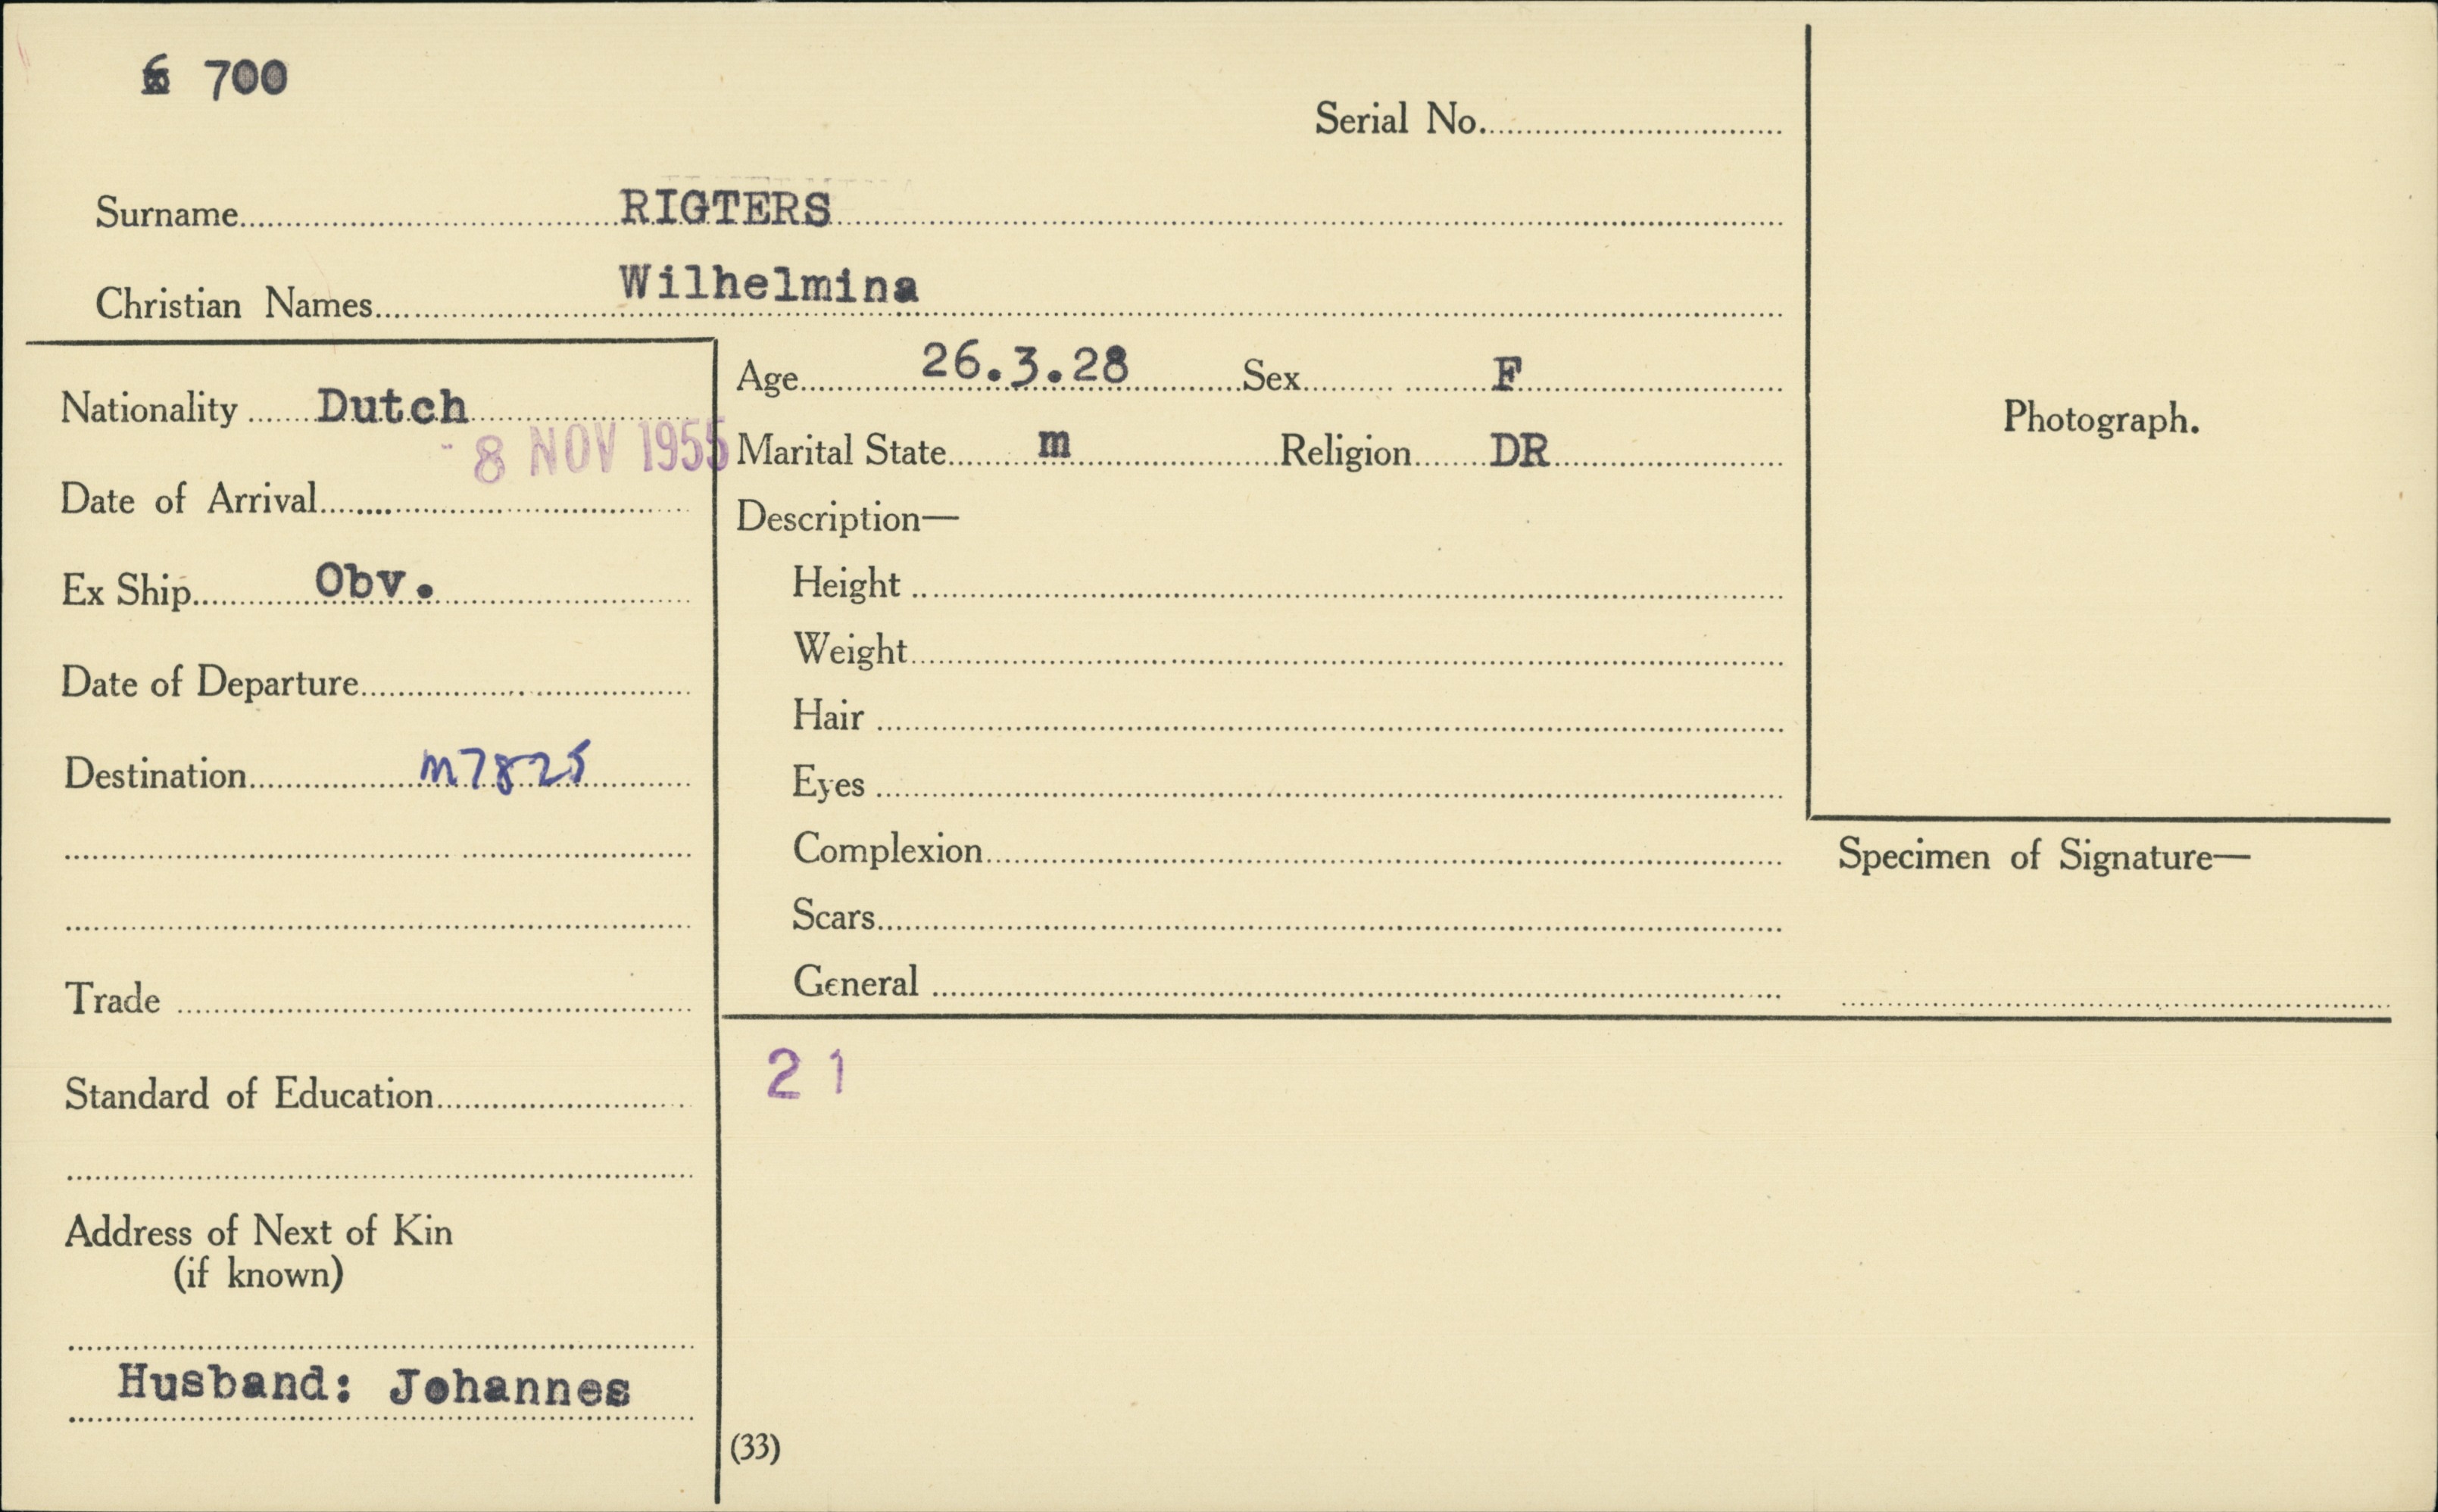 6 700
Serial No.
Surname RIGTERS
Christian Names Wilhelmina
Nationality Dutch
- 8 NOV 1955
Date of Arrival
Ex Ship Obv.
Date of Departure
Destination M7825
Trade
Standard of Education
Address of Next of Kin
(if known)
Husband: Johannes
Age 26.3.28 Sex F
Marital State m Religion DR
Description—
Height
Weight
Hair
Eyes
Complexion
Scars
General
21
(33)
Photograph.
Specimen of Signature—